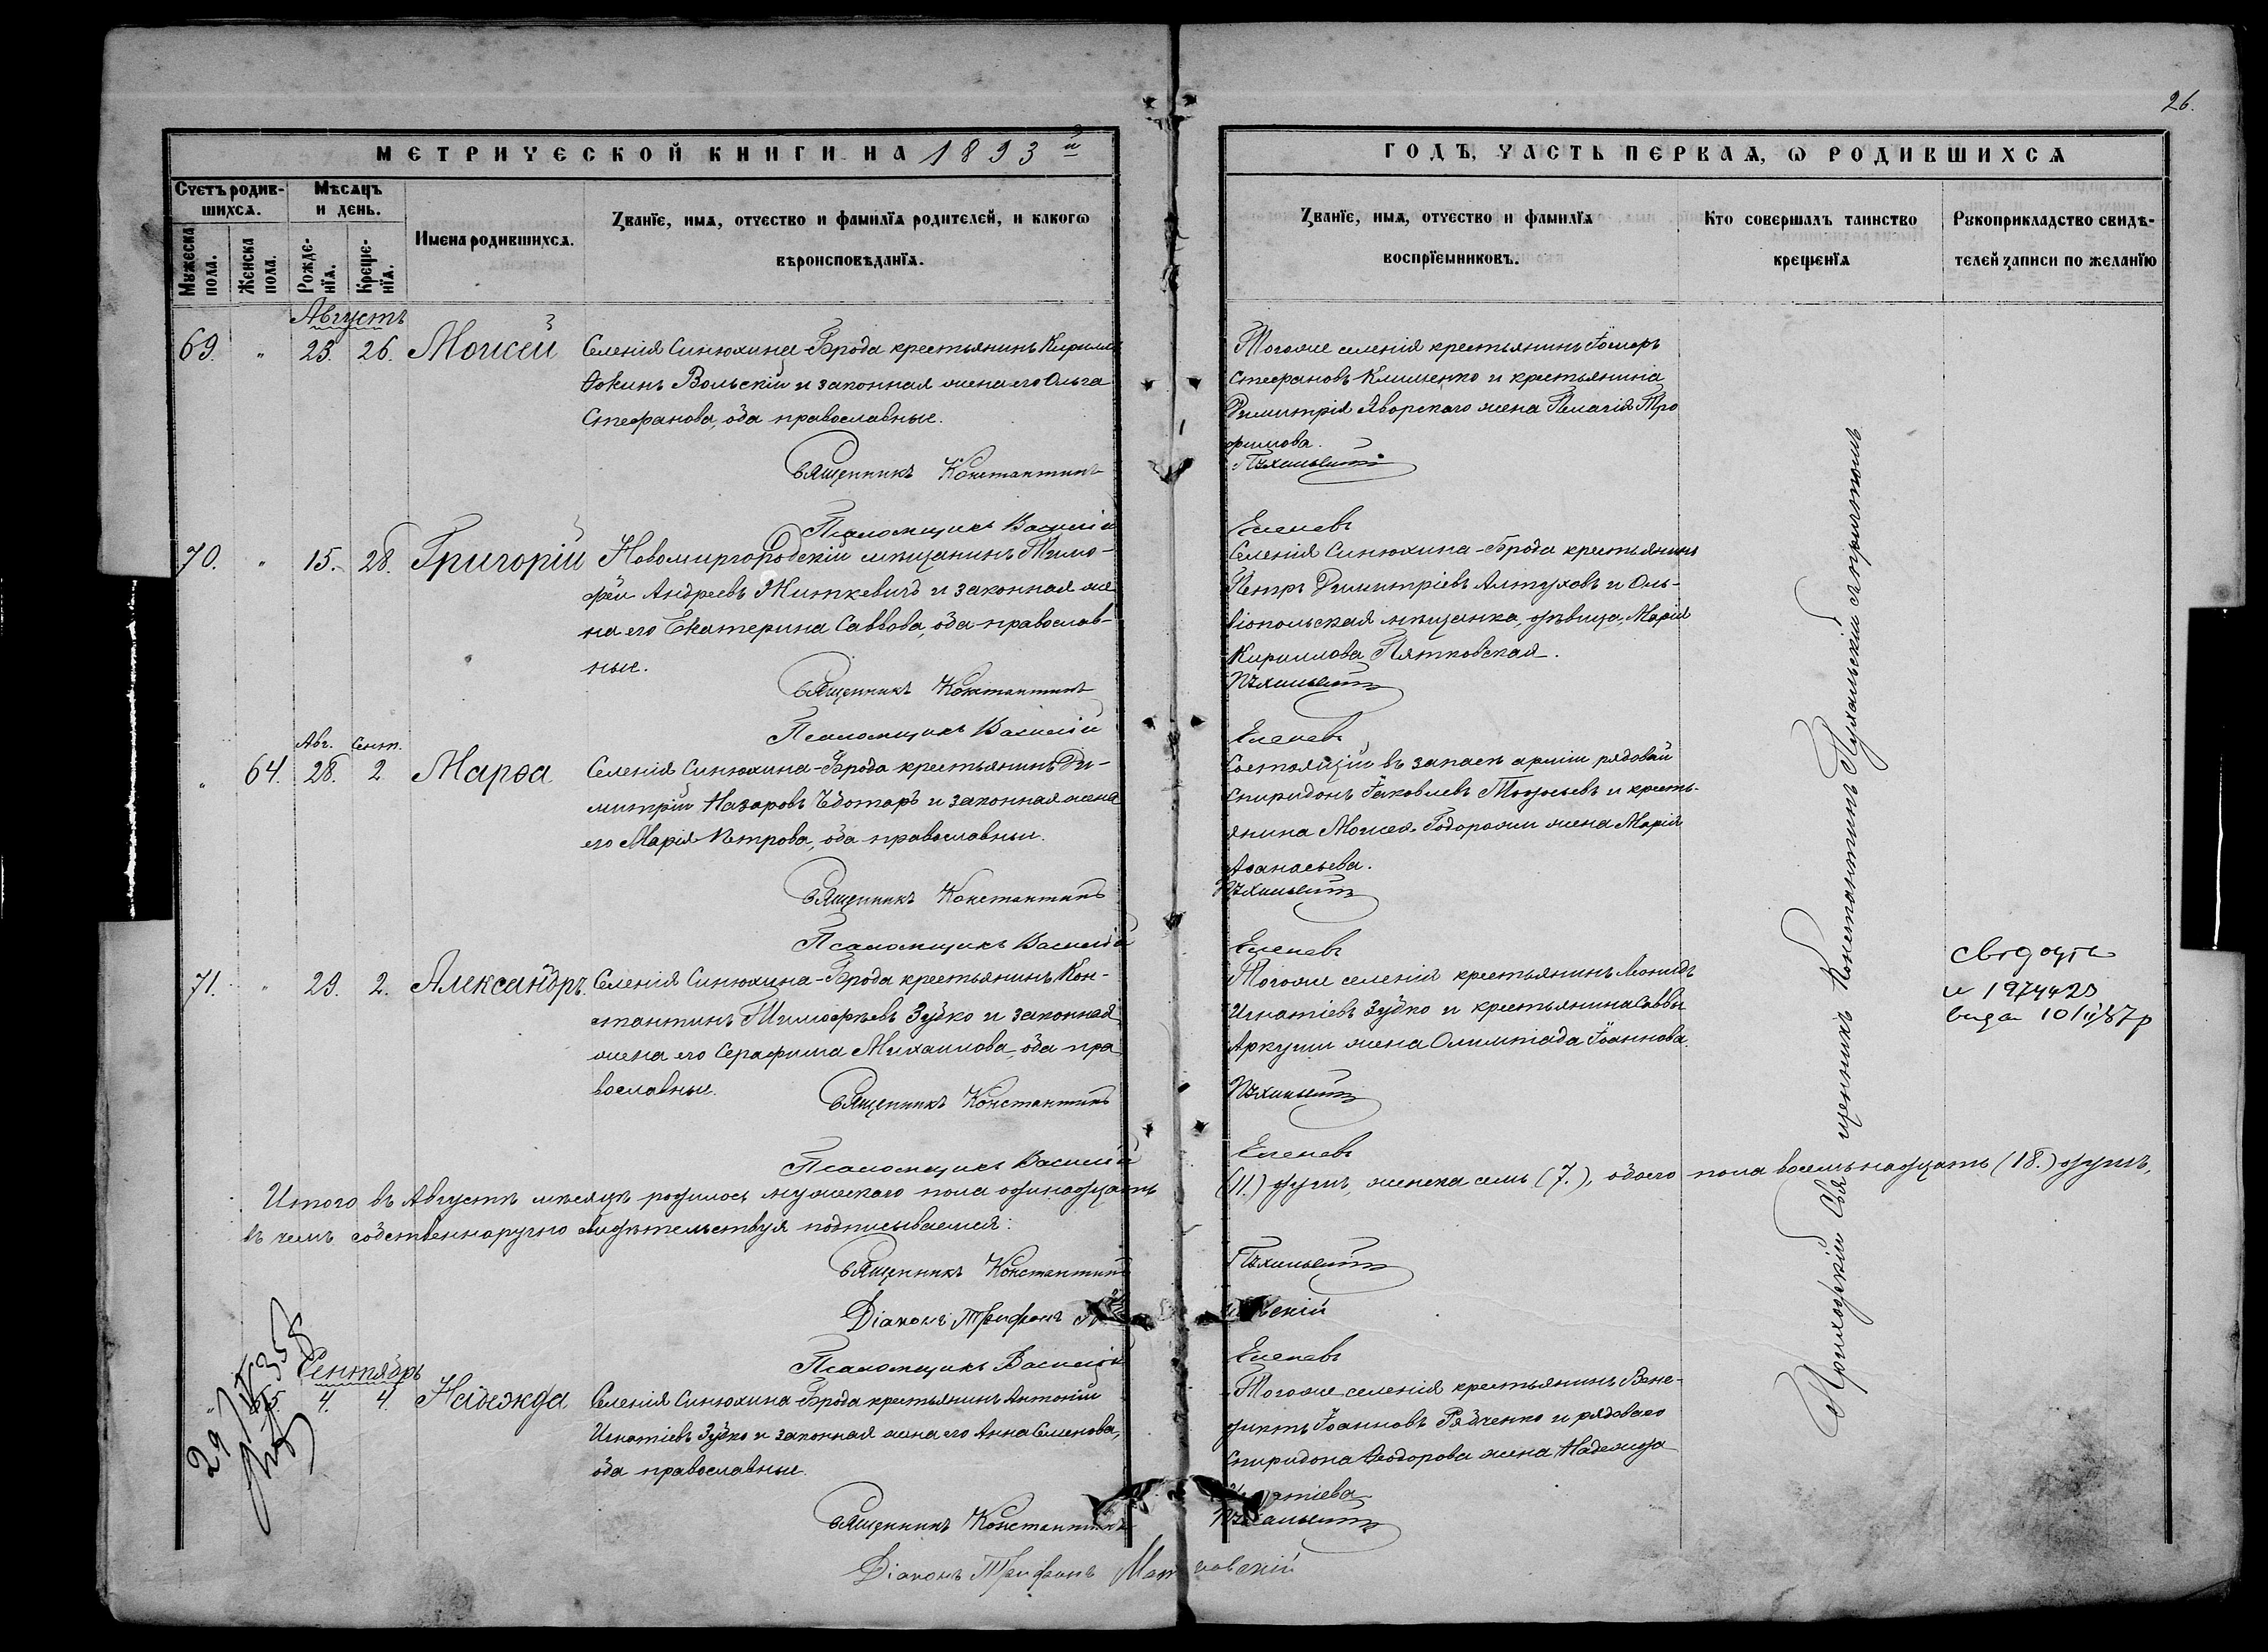 26.
МЕТРИЧЕСКОЙ КНИГИ НА 1893й
ГОДЪ, ЧАСТЬ ПЕРВАЯ, Ѡ РОДИВШИХСЯ
Счетъ родив-
шихся.
Мѣсяцъ
и день.
Мужеска
пола.
Женска
пола.
Рожде-
нїя.
Креще-
нїя.
Имена родившихся.
Званїе, имя, отчество и фамилїя родителей, и какогѡ
вѣроисповѣданїя.
Званїе, имя, отчество и фамилїя
воспрїемниковъ.
Кто совершалъ таинство
крещенїя
Рукоприкладство свидѣ-
телей записи по желанїю
Августъ
69. " 23. 26. Моисей
Селенія Синюхина-Брода крестьянинъ Кириллъ
Ѳокинъ Вольскій и законная жена его Ольга
Стефанова, оба православные.
Священникъ Константинъ
Псаломщикъ Василій
Тогоже селенія крестьянинъ
Стефановъ Клименко и крестьянина
Димитрія Яворскаго жена Пелагія Тро
фимова.
Еленевъ
70. " 15. 28. Григорій
Новомиргородскій мѣщанинъ Тимо-
фей Андреевъ Житкевичъ и законная же
на его Екатерина Саввова, оба православ-
ные.
Священникъ Константинъ
Псаломщикъ Василій
Селенія Синюхина-Брода крестьянинъ
Петръ Димитріевъ Алтуховъ и Оль-
віопольская мѣщанка, дѣвица, Марія
Кириллова Пятковская.
Еленевъ
Авг. Сент.
" 64. 28. 2 Марѳа
Селенія Синюхина-Брода крестьянинъ Ди-
митрій Назаровъ Чеботаръ и законная жена
его Марія Петрова, оба православные.
Священникъ Константинъ
Псаломщикъ Василій
Состоящій въ запасѣ арміи рядовой
Спиридонъ Іаковлевъ и кресть-
янина Моисея жена Марія
Аѳанасьева.
Еленевъ
71. " 29. 2. Александръ.
Селенія Синюхина-Брода крестьянинъ Кон-
стантинъ Тимоѳеевъ Зубко и законная
жена его Серафима Михаилова, оба пра
вославные.
Священникъ Константинъ
Псаломщикъ Василій
Тогоже селенія крестьянинъ Леонидъ
Игнатіевъ Зубко и крестьянина Саввы
Аркуши жена Олимпіада Іоаннова.
Еленевъ
10/II 87р
Итого въ Августѣ мѣсяцѣ родилось мужескаго пола одинадцать
(11.) душъ, женска семь (7.), обоего пола восемьнадцать (18.) душъ,
въ чемъ собственноручно свидѣтельствуя подписываемся:
Священникъ Константинъ
Діаконъ Трифонъ
Псаломщикъ Василій
Еленевъ
Сентябрь
" 65. 4. 4. Надежда
Селенія Синюхина-Брода крестьянинъ Антоній
Игнатіевъ Зубко и законная жена его Анна Семенова,
оба православные.
Священникъ Константинъ
Діаконъ Трифонъ
Тогоже селенія крестьянинъ Вене-
диктъ Іоанновъ Рябченко и рядоваго
Спиридона Ѳеодорова жена Надежда
Приходскій Священникъ Константинъ